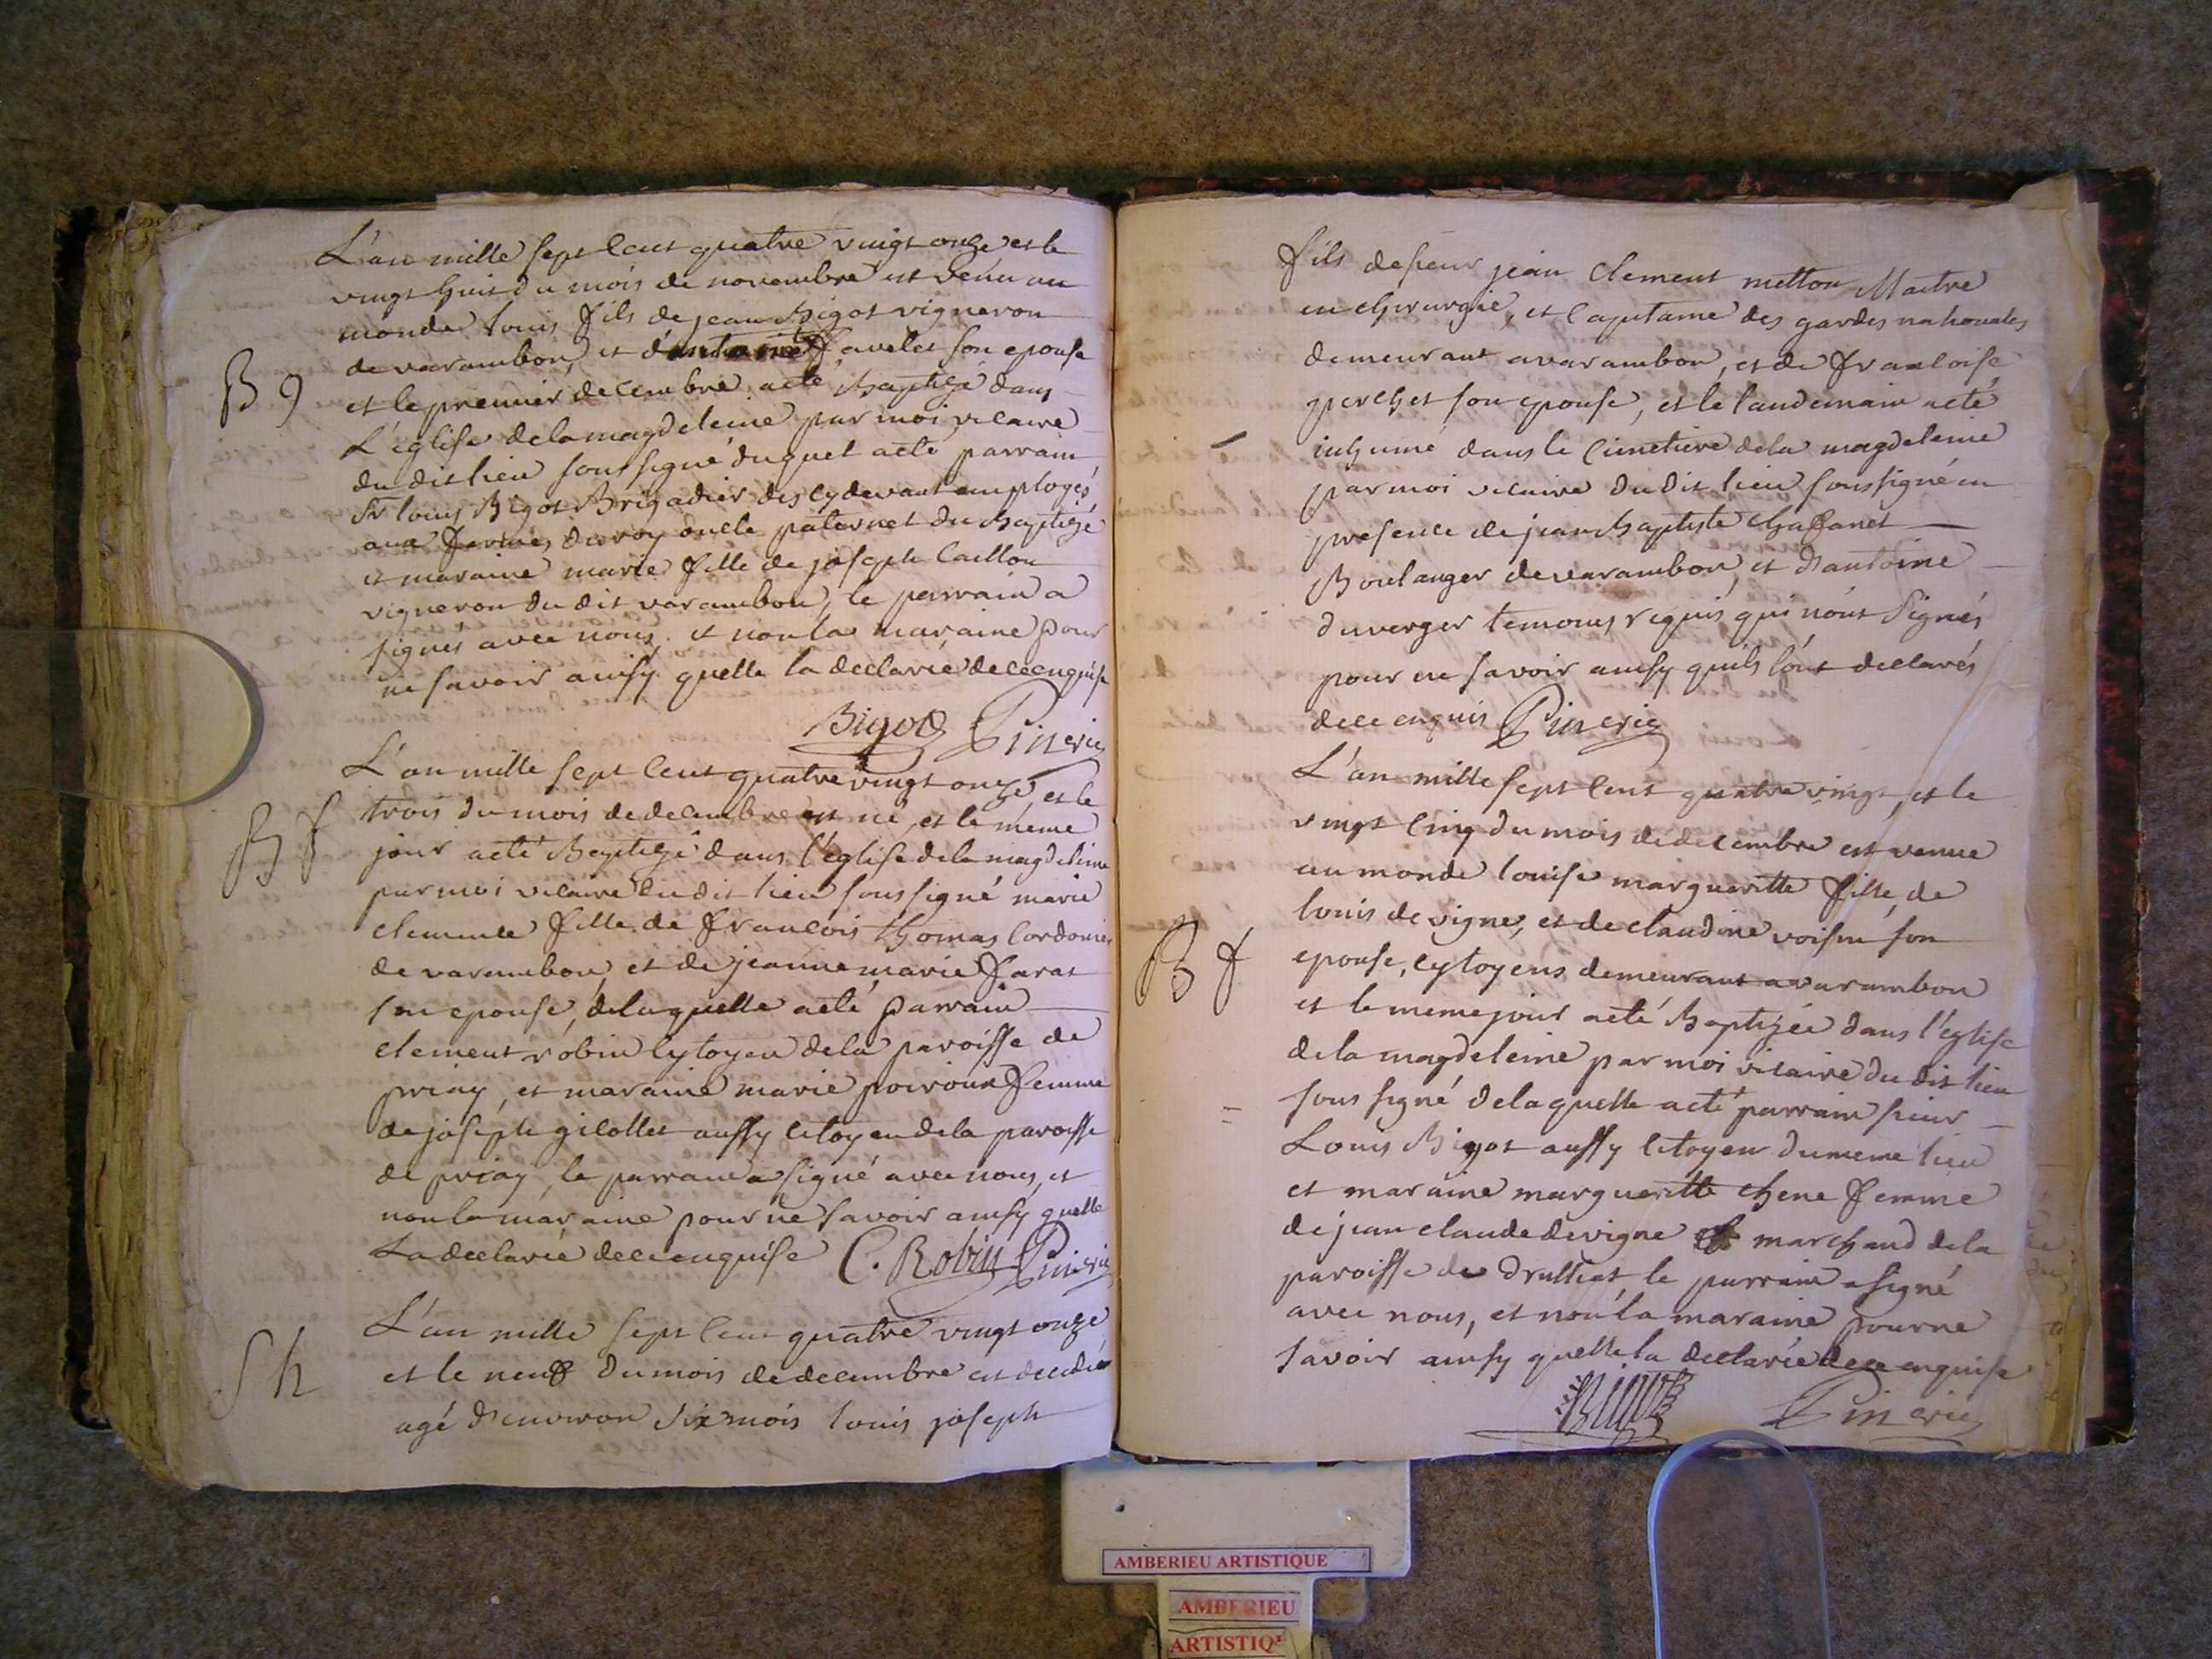 L'an mille sept cent quatre vingt onze et le
vingt huit du mois de novembre est venu au
monde louis fils de jean Bigot vigneron
de varambon, et d'antoinette favelet son epouse
B g
et le premier decembre acté Baptizé dans
L'église dela magdeleine par moi vicaire
du dit lieu soussigné duquel acté parrain
Sr louis Bigot Brigadier des cy devant employés
aux fermes du roy oncle paternel du Baptizé
et maraine marie fille de joseph Caillon
vigneron du dit varambon, le parrain a
signés avec nous, et non la maraine pour
ne savoir ainsy quelle la declarée dece enquise
Bigot Pinerie
L'an mille sept cent quatre vingt onze et le
B f
trois du mois de decembre est né, et le meme
jour acté Baptizé dans l'église dela magdeleine
par moi vicaire du dit lieu soussigné marie
clemence fille de françois thomas Cordonier
de varambon, et de jeanne marie farat
son epouse, delaquelle acté parrain
clement robin cytoyen dela paroisse de
priay, et maraine marie poiroux femme
de joseph gilottet aussy citoyen dela paroisse
de priay, le parrain a signé avec nous, et
non la maraine pour ne savoir ainsy quelle
La declarée dece enquise C. Robin Pinerie
S h
L'an mille sept cent quatre vingt onze
et le neuf du mois de decembre est decedé
agé d'environ six mois louis joseph
fils de sieur jean Clement metton Maitre
en chirurgie, et Capitaine des gardes nationales
demeurant avarambon, et de francoise
perchet son epouse, et le landemain acté
inhumé dans le Cimetiere dela magdeleine
par moi vicaire du dit lieu soussigné en
presence de jean Baptiste Chaffanet
Boulanger de varambon, et d'antoine
duverger temoins requis qui n'ont signés
pour ne savoir ainsy quils l'ont declarés
dece enquis Pinerie
L'an mille sept cent quatre vingt, et le
vingt cinq du mois de decembre est venue
au monde louise margueritte fille de
louis devigne, et de claudine voisin son
B f
epouse, cytoyens demeurant avarambon
et le meme jour acté Baptizée dans l'église
dela magdeleine par moi vicaire du dit lieu
sous signé delaquelle acté parrain sieur
Louis Bigot aussy citoyen du meme lieu
et maraine margueritte chene femme
de jean claude devigne marchand dela
paroisse de druilliat le parrain a signé
avec nous, et non la maraine pour ne
savoir ainsy quelle la declarée dece enquise
Bigot Pinerie
AMBERIEU ARTISTIQUE
AMBERIEU
ARTISTIQ